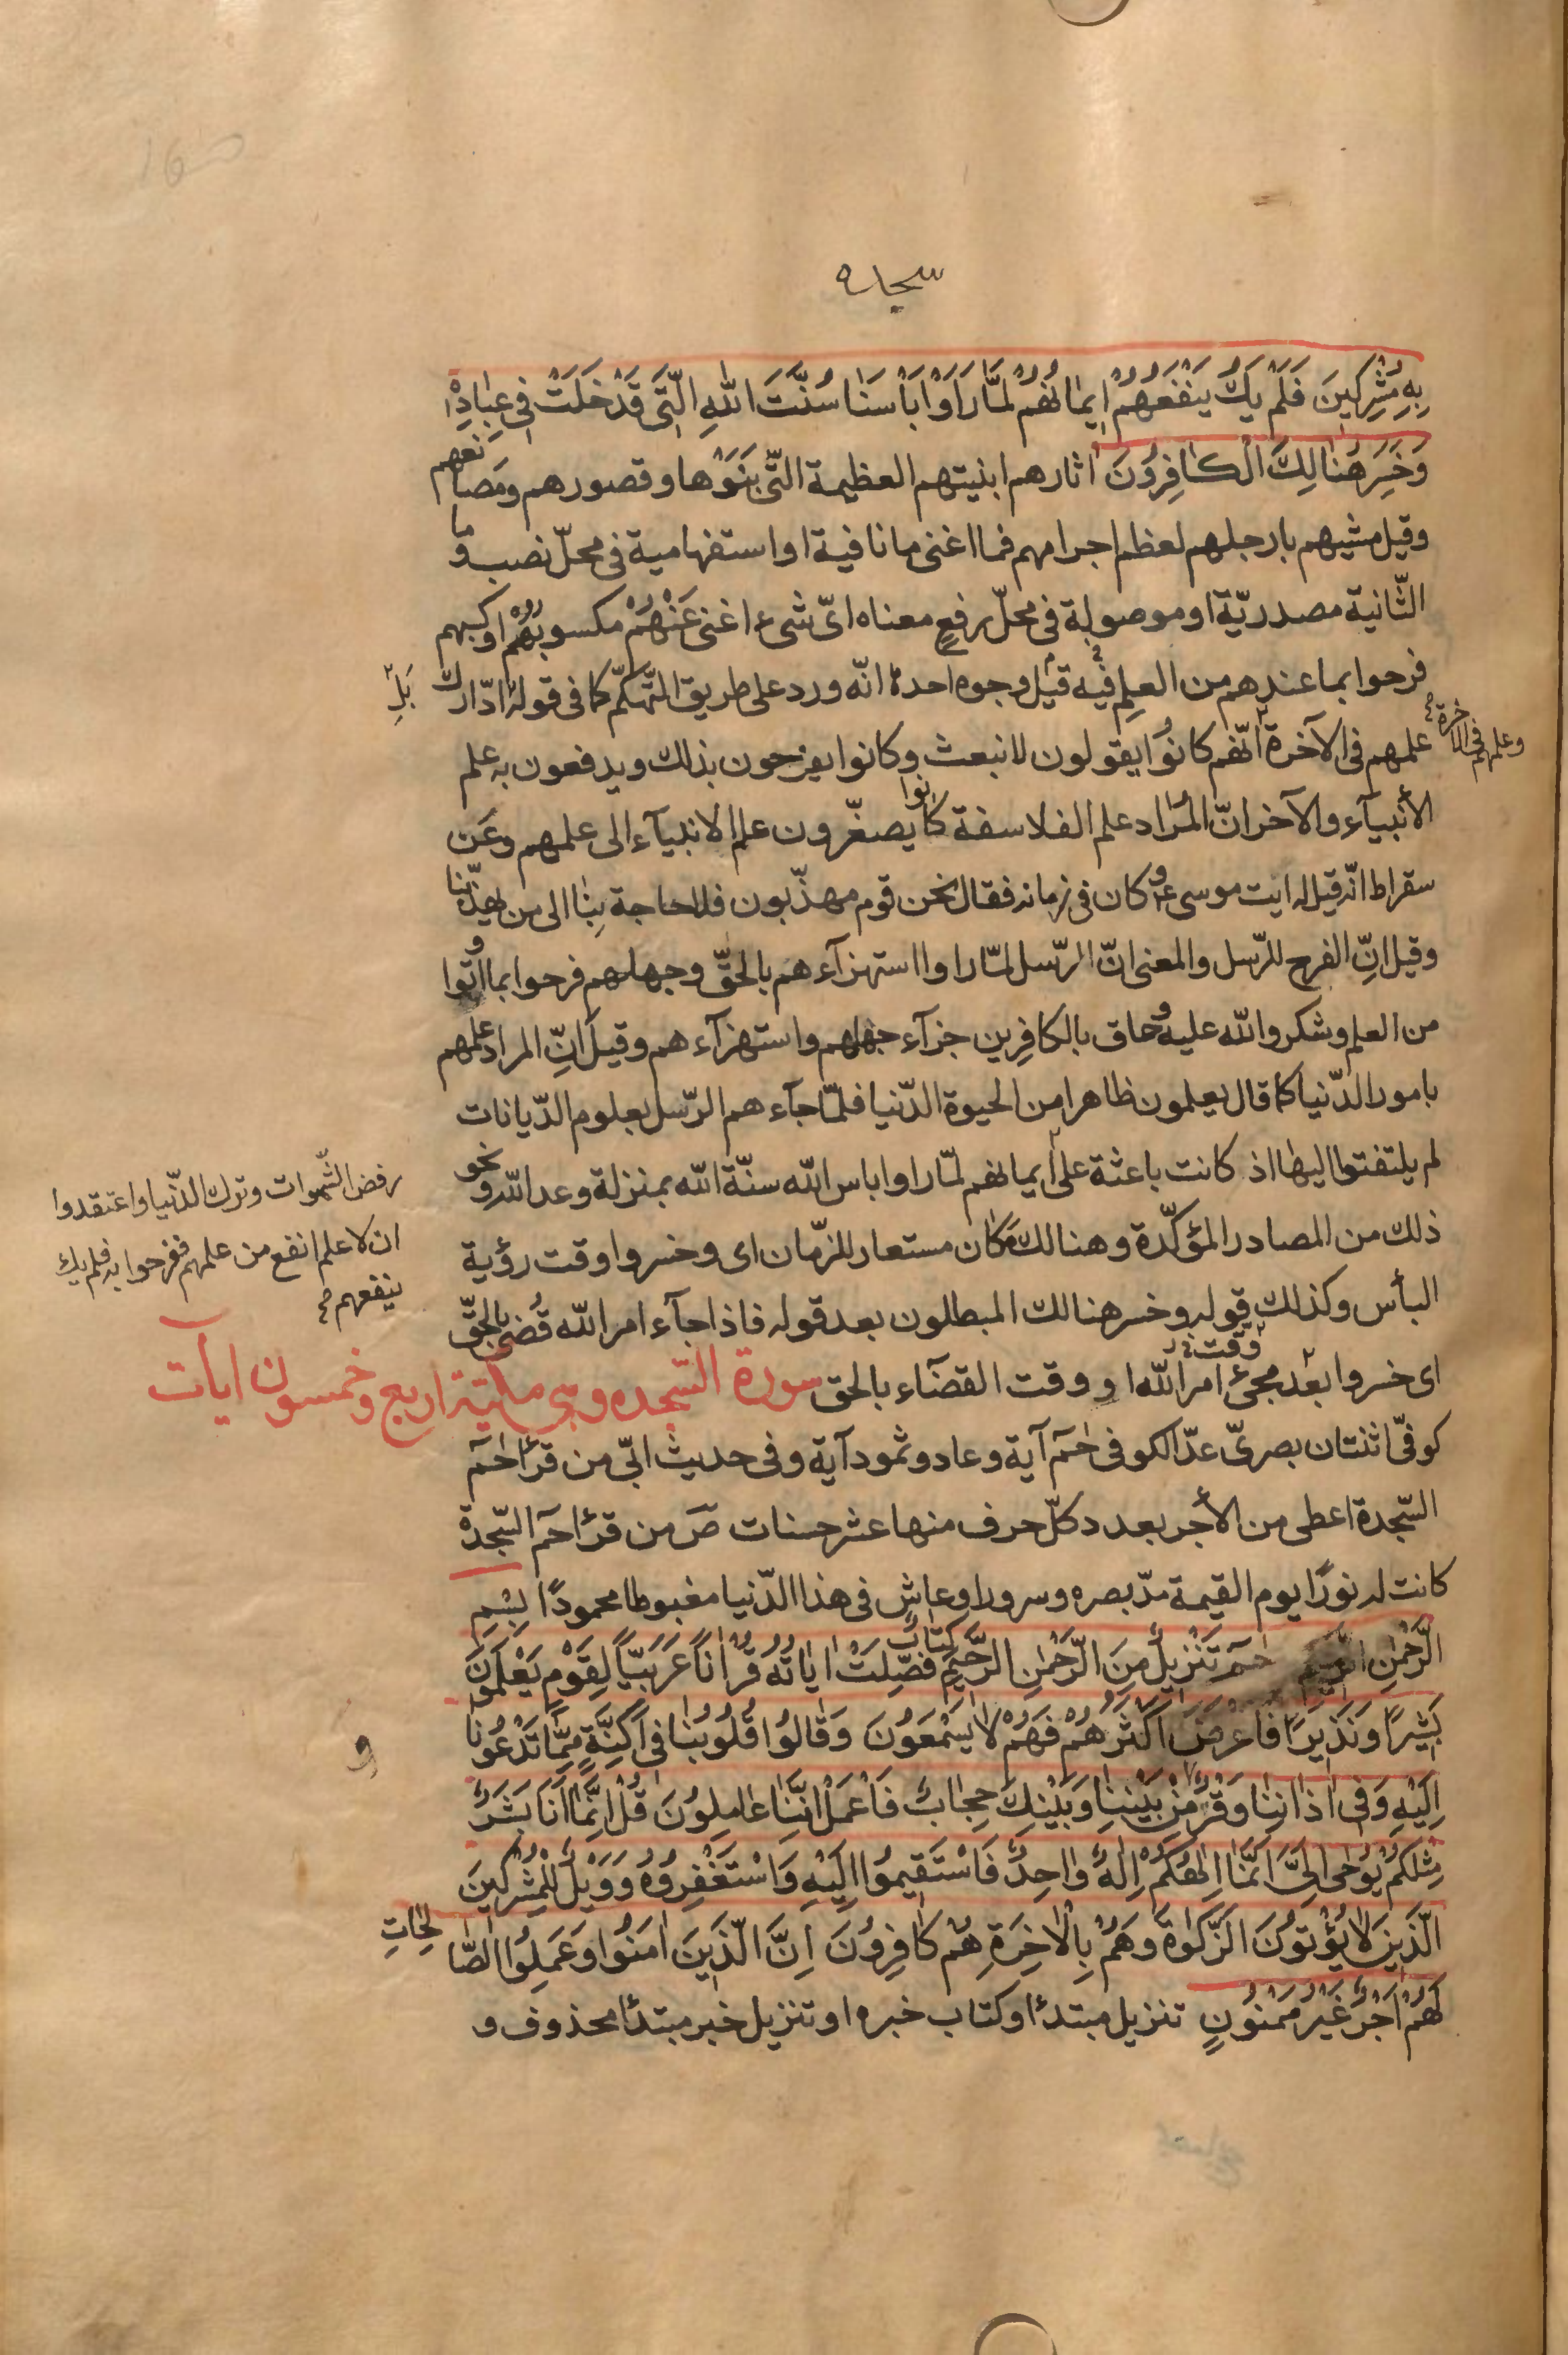 سجده
بِهِ مُشْرِكِينَ فَلَمْ يَكُ يَنْفَعُهُمْ إِيمَانُهُمْ لَمَّا رَأَوْا بَأْسَنَا سُنَّتَ اللهِ الَّتِي قَدْ خَلَتْ فِي عِبَادِهِ
وَخَسِرَ هُنَالِكَ الْكَافِرُونَ اثارهم ابنيتهم العظيمة الّتى بَنَوْها وقصورهم ومَصانعهم
وقيل مشيهم بارجلهم لعظم اجرامهم فما اغنى ما نافية او استفهامية فى محلّ نصب وما
الثّانية مصدريّة او موصولة فى محلّ رفعٍ معناه اىّ شىء اغنى عَنْهُمْ مكسوبُهُمْ او كسبهم
فرحوا بما عندهم من العلم فيه قيل وجوه احدها انّه ورد على طريق التّهكّم كما فى قوله بَلِ ادّارك
علمهم فى الآخرة وعلمهم فى الاخرة انّهم كانُوا يقولون لا نبعث وكانوا يفرحون بذلك ويدفعون به علم
الأنبيآء والآخر انّ المُراد علم الفلاسفة كانوا يصغّرون علم الانبيآء الى علمهم وعَن
سقراط انّه قيل له ايت موسى ع وكان فى زمانه فقال نحن قوم مهذّبون فلا حاجة بِنا الى من يهذّبنا
وقيل انّ الفرح للرّسل والمعنى انّ الرّسل لمّا راوا استهزآءهم بالحقّ وجهلهم فرحوا بما اُوتوا
من العلم وشكروا الله عليه وحاق بالكافرين جزآء جهلهم واستهزآءهم وقيل انّ المراد علمهم
بامور الدّنيا كما قال يعلمون ظاهرا من الحيوة الدّنيا فلمّا جآءهم الرّسل بعلوم الدّيانات
لم يلتفتوا اليها اذ كانت باعثة على
رفض الشّهوات وترك الدّنيا واعتقدوا
ان لا علم انفع من علمهم ففرحوا به فلم يك
ينفعهم
ايمانهم لمّا راوا باس الله سنّة الله بمنزلة وعد الله ونحو
ذلك من المصادر المؤكّدة وهنالك مَكان مستعار للزّمان اى وخسروا وقت رؤية
البأس وكذلك قوله وخسر هنالك المبطلون بعد قوله فاذا جآء امر الله قُضى بالحقّ
اى خسروا بعد وقت مجىء امر الله او وقت القضآء بالحق سورة السّجده وهى مكّيّة اربع وخمسون ايات
كوفىّ اثنتان بصرىّ عدّ الكوفى حٰمٓ آية وعاد وثمود آية وفى حديث ابىّ من قرأ حٰمٓ
السّجدة اعطى من الأجر بعدد كلّ حرف منها عشر حسنات صَ من قرأ حٓم السّجدة
كانت له نورًا يوم القيمة مدّ بصره وسرورا وعاش فى هذا الدّنيا مغبوطا محمودًا بِسْمِ
الرَّحْمٰنِ الرَّحِيمِ حٰمٓ تَنْزِيلٌ مِنَ الرَّحْمٰنِ الرَّحِيمِ كِتَابٌ فُصِّلَتْ ايَاتُهُ قُرْانًا عَرَبِيًّا لِقَوْمٍ يَعْلَمُونَ
بَشِيرًا وَنَذِيرًا فَاَعْرَضَ اَكْثَرُهُمْ فَهُمْ لَا يَسْمَعُونَ وَقَالُوا قُلُوبُنَا فِى اَكِنَّةٍ مِمَّا تَدْعُونَا
اِلَيْهِ وَفِى اٰذَانِنَا وَقْرٌ وَمِنْ بَيْنِنَا وَبَيْنِكَ حِجَابٌ فَاعْمَلْ اِنَّنَا عَامِلُونَ قُلْ اِنَّمَا اَنَا بَشَرٌ
مِثْلُكُمْ يُوحٰى اِلَىَّ اَنَّمَا اِلٰهُكُمْ اِلٰهٌ وَاحِدٌ فَاسْتَقِيمُوا اِلَيْهِ وَاسْتَغْفِرُوهُ وَوَيْلٌ لِلْمُشْرِكِينَ
الَّذِينَ لَا يُؤْتُونَ الزَّكٰوةَ وَهُمْ بِالْاٰخِرَةِ هُمْ كَافِرُونَ اِنَّ الَّذِينَ اٰمَنُوا وَعَمِلُوا الصَّالِحَاتِ
لَهُمْ اَجْرٌ غَيْرُ مَمْنُونٍ تنزيل مبتدأ وكتاب خبره او تنزيل خبر مبتدأ محذوف و